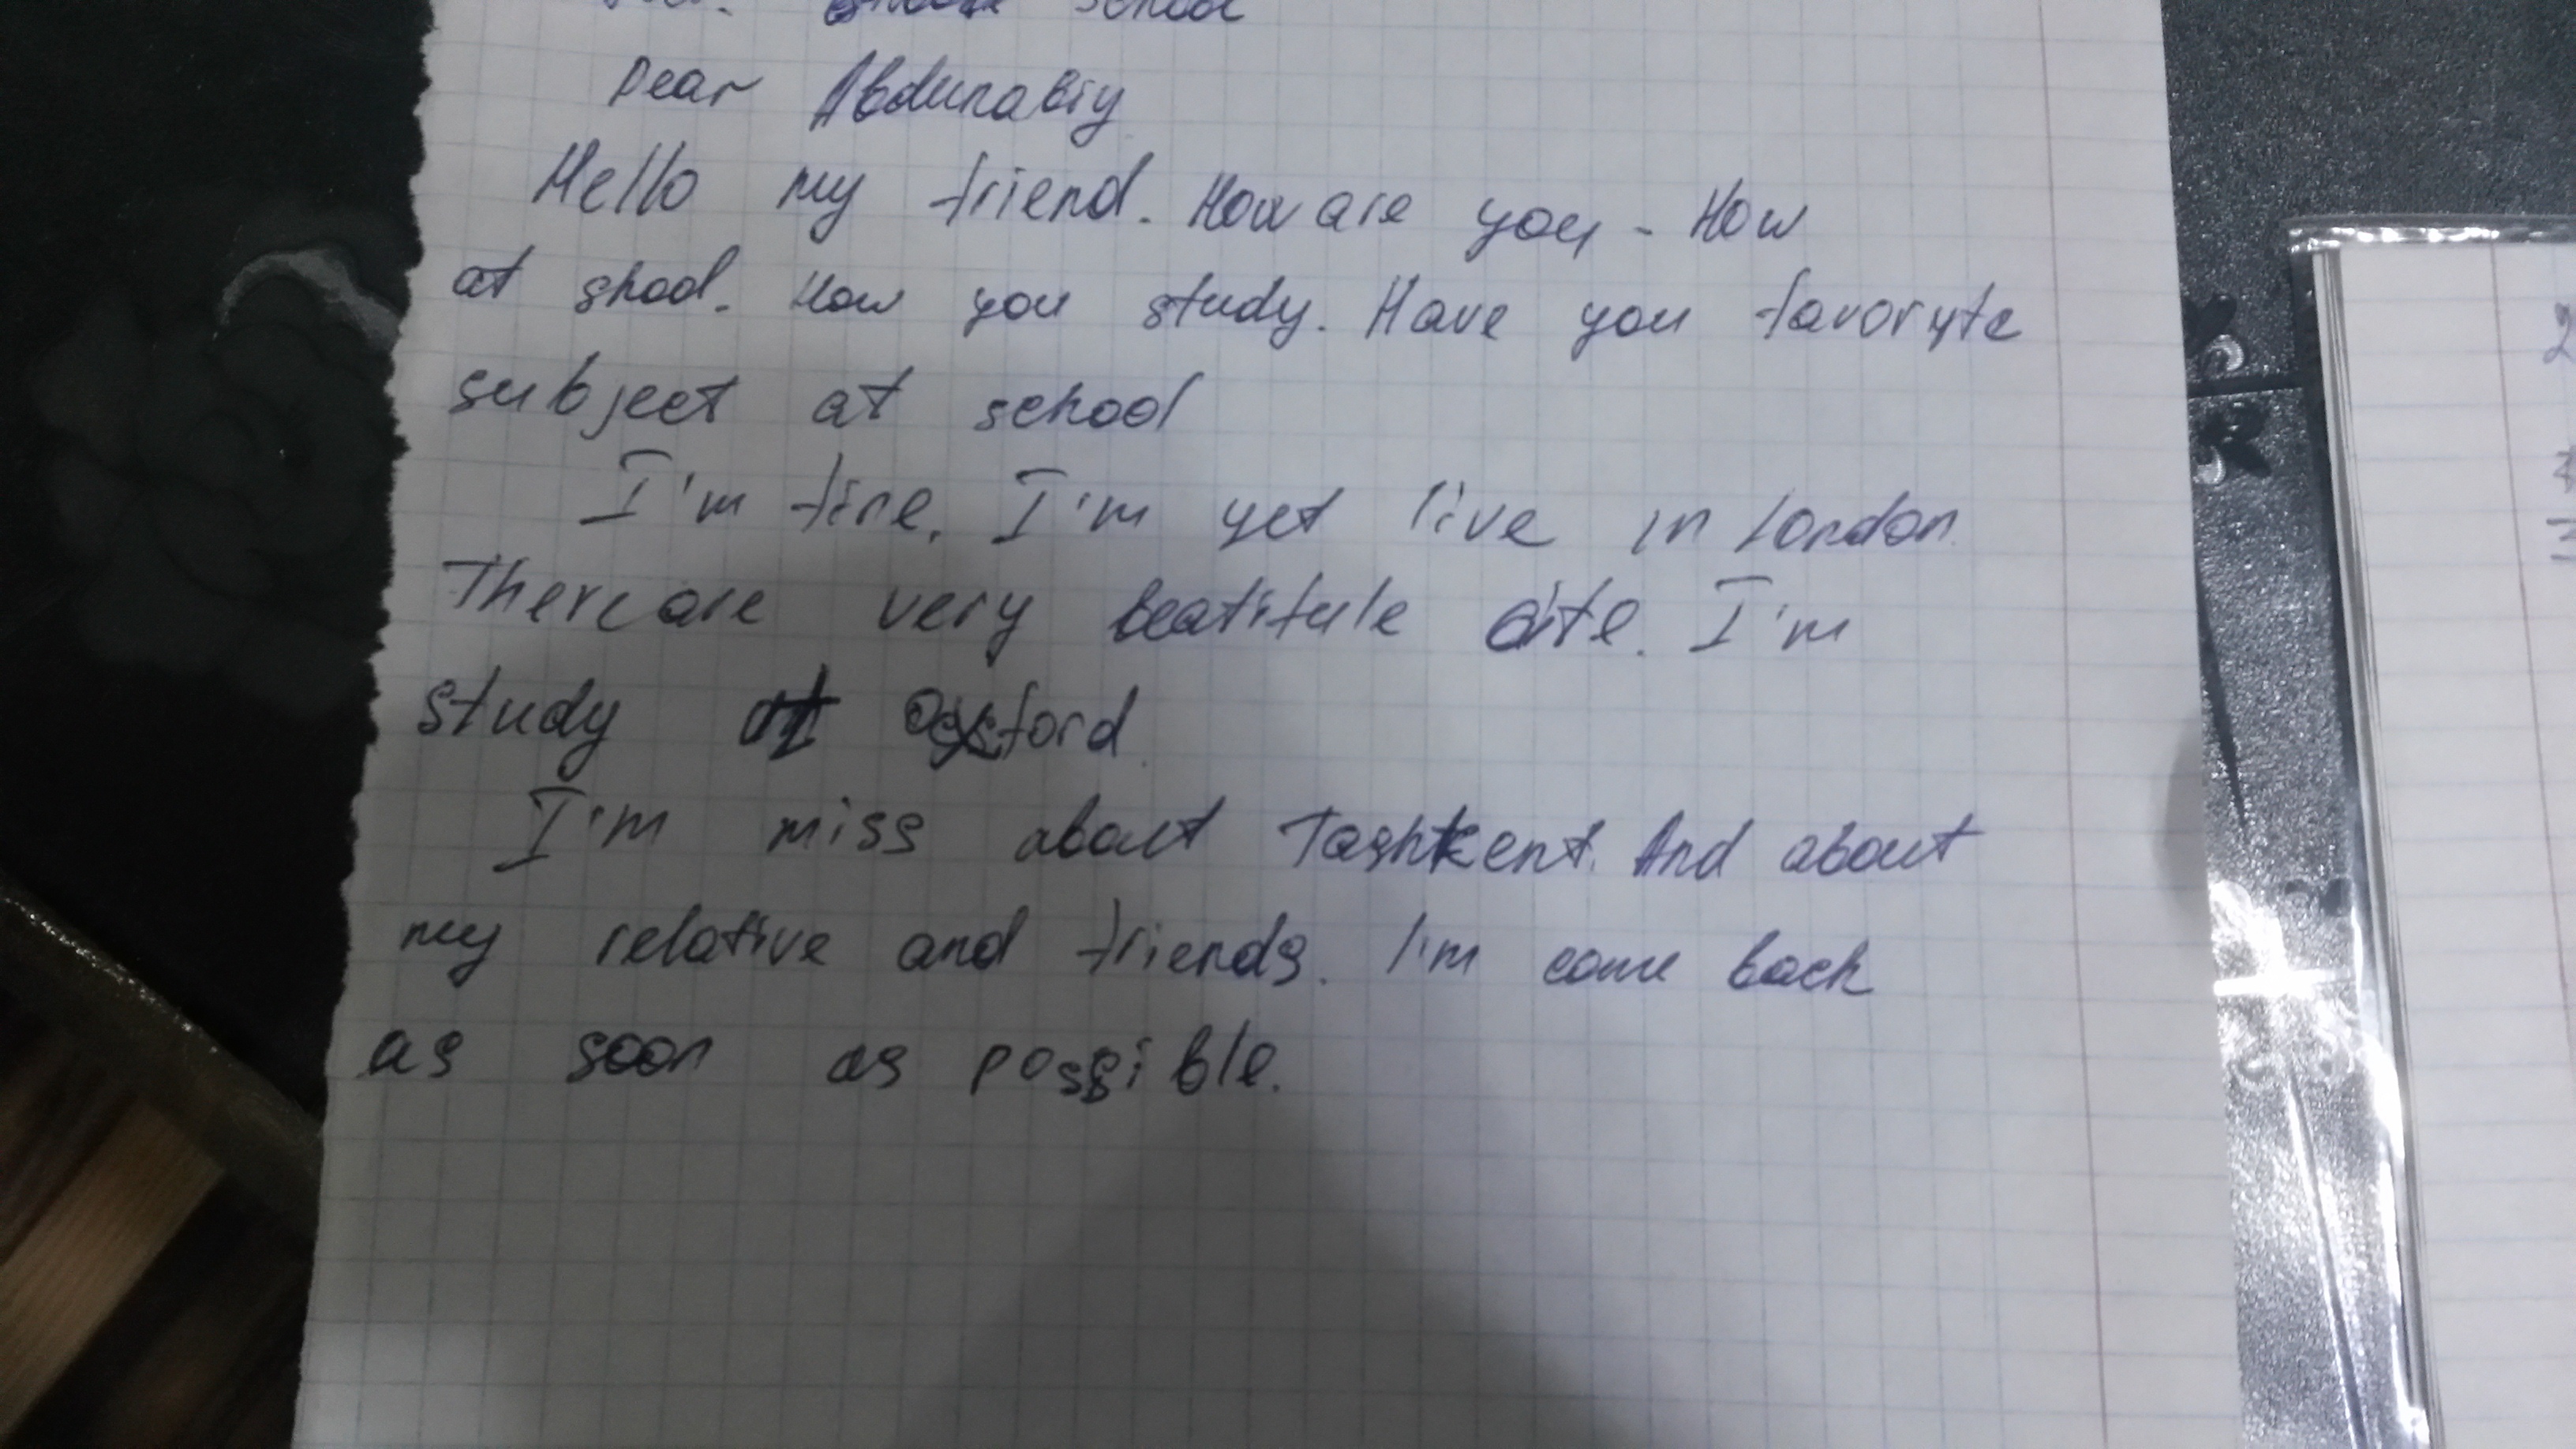 school
Dear Abdunabiy
Hello my friend. How are you - How
at shool. How you study. Have you favoryte
subject at school
I'm fine. I'm yet live in London.
There are very beatifule cite. I'm
study at Oxford.
I'm miss about Tashkent. And about
my relative and friends. I'm come back
as soon as possible.